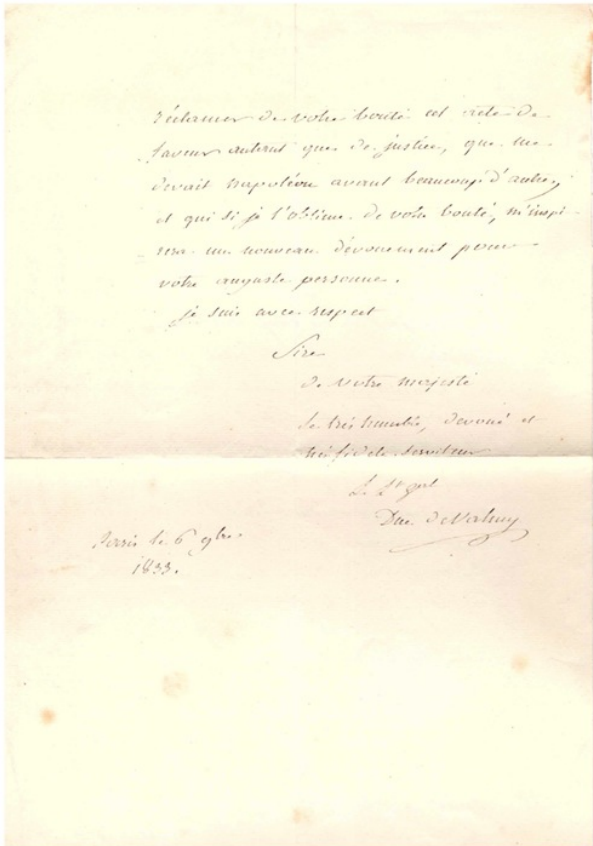 réclamer de votre bonté cet acte de
faveur autant que de justice, que me
devait napoléon avant beaucoup d'autres,
et qui si je l'obtiens de votre bonté, m'inspi-
rera un nouveau dévouement pour
votre auguste personne.
je suis avec respect
Sire
de votre majesté
le très humble, dévoué et
très fidele serviteur
Le Lt gal
Duc de Valmy
Paris le 6 9bre
1833.